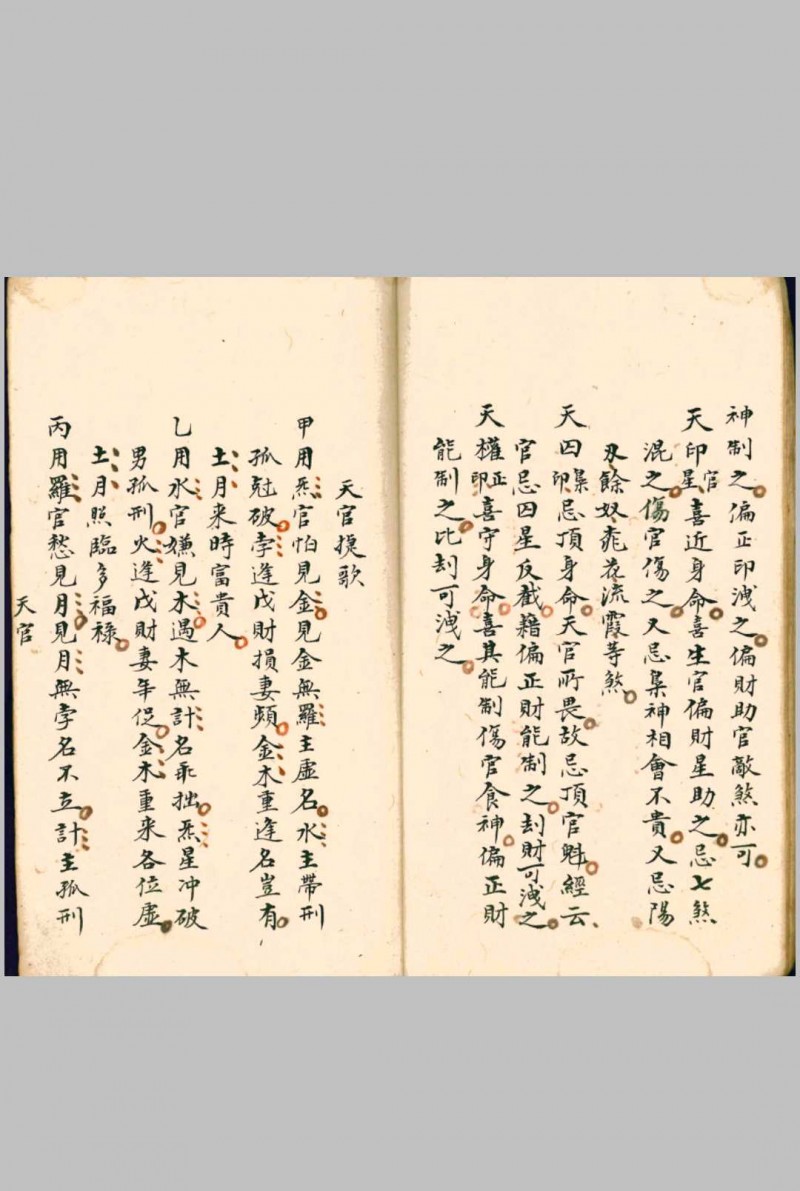 神制之偏正印洩之偏財助官敵煞亦可
天印官星喜近身命喜生官偏財星助之忌七煞
混之傷官傷之又忌梟神相會不貴又忌陽
刃餘奴桃花流霞等煞
天囚梟印忌頂身命天官所畏故忌頂官魁經云
官忌囚星反截藉偏正財能制之刦財可洩之
天權正印喜守身命喜其能制傷官食神偏正財
能制之比刦可洩之
天官提歌
甲用炁官怕見金見金無羅主虛名水主帶刑
孤尅破孛逢戊財損妻頻金木重逢名豈有
土月来時富貴人
乙用水官嫌見木遇木無計名乖拙炁星冲破
男孤刑火逢戊財妻年促金木重来各位虛
土月照臨多福祿
丙用羅官愁見月見月無孛名不立計主孤刑
天官